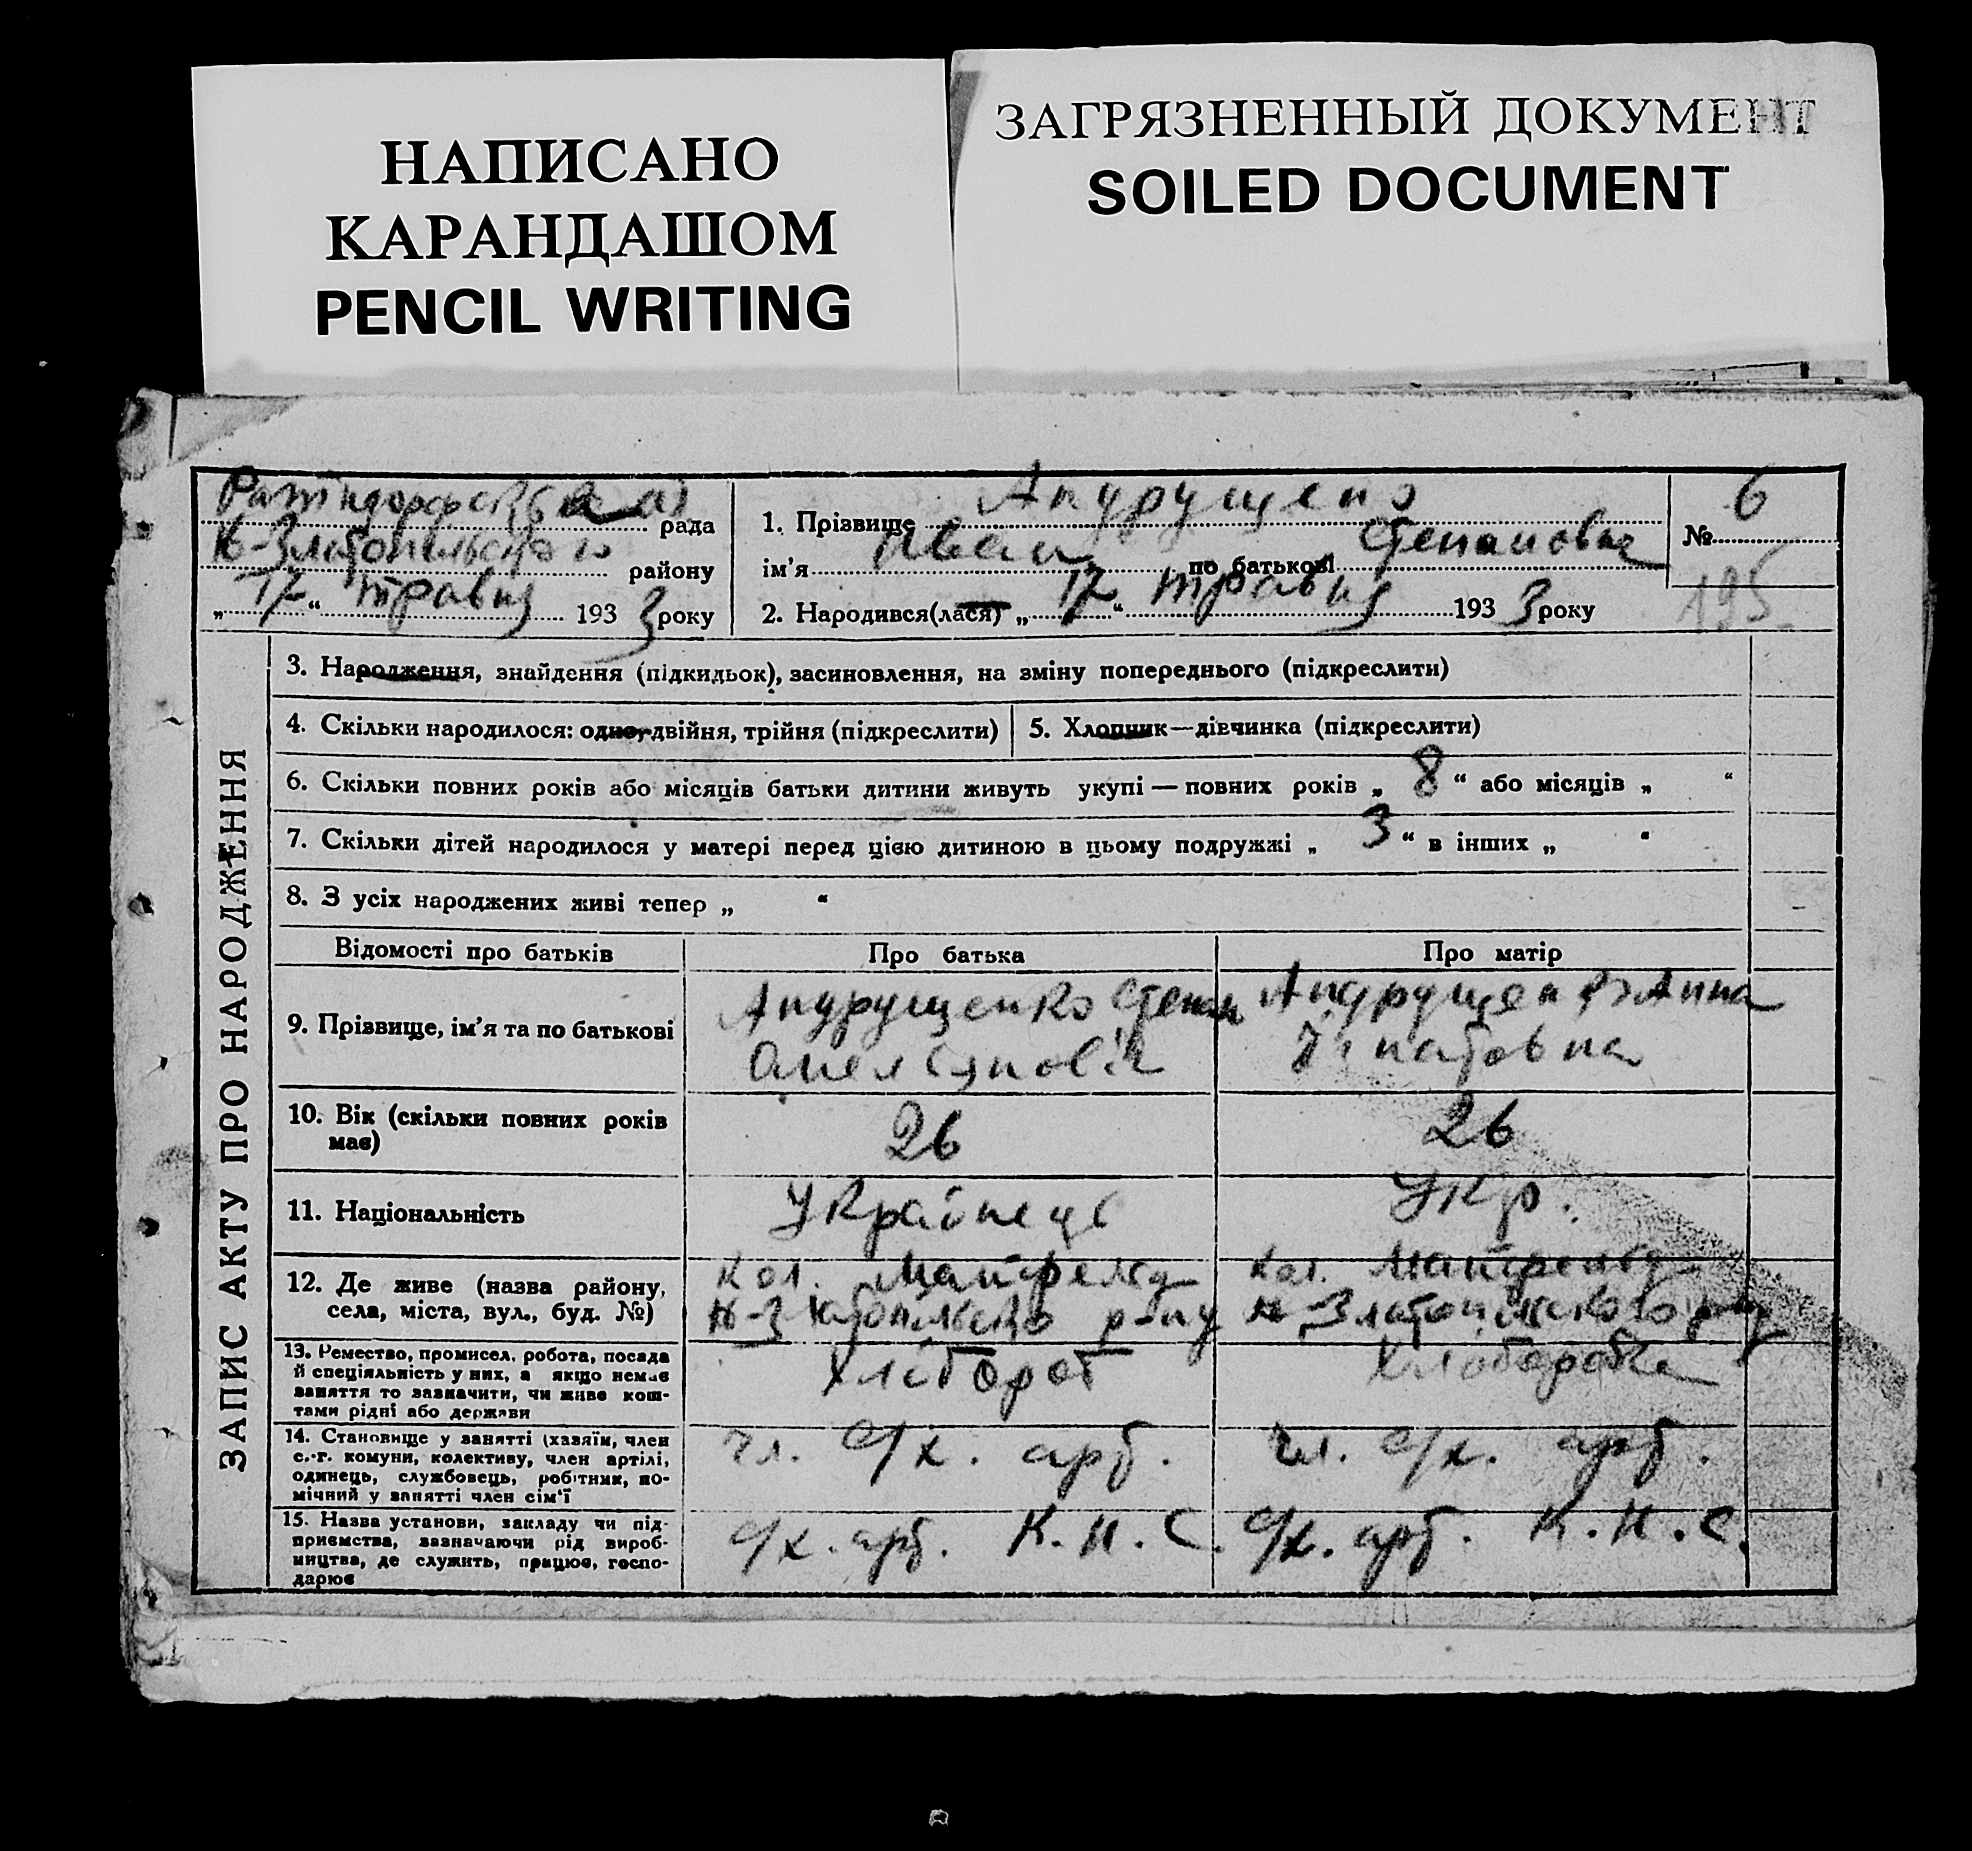 НАПИСАНО
КАРАНДАШОМ
PENCIL WRITING
ЗАГРЯЗНЕННЫЙ ДОКУМЕНТ
SOILED DOCUMENT
рада
Н-Златопільського району
„17“ травня 1933 року
1. Прізвище Андрущенко
ім'я Иван по батькові Степанович
2. Народився(лася) „17“ травня 1933 року
№ 6
195
ЗАПИС АКТУ ПРО НАРОДЖЕННЯ
3. Народження, знайдення (підкидьок), засиновлення, на зміну попереднього (підкреслити)
4. Скільки народилося: одно, двійня, трійня (підкреслити)
5. Хлопчик—дівчинка (підкреслити)
6. Скільки повних років або місяців батьки дитини живуть укупі — повних років „ 8 “ або місяців „ “
7. Скільки дітей народилося у матері перед цією дитиною в цьому подружжі „ 3 “ в інших „ “
8. З усіх народжених живі тепер „ “
Відомості про батьків
Про батька
Про матір
9. Прізвище, ім'я та по батькові
Андрущенко Степан
Омелянович
Андрущенко Анна
Ігнатовна
10. Вік (скільки повних років
має)
26
26
11. Національність
Українець
Укр.
12. Де живе (назва району,
села, міста, вул., буд. №)
Кол.
Н-Златопільського р-ну
Кол.
Н-Златопільського р-ну
13. Ремество, промисел, робота, посада
й спеціяльність у них, а якщо немає
заняття то зазначити, чи живе кош-
тами рідні або держави
Хлібороб
Хліборобка
14. Становище у занятті (хазяїн, член
с.-г. комуни, колективу, член артілі,
одинець, службовець, робітник, по-
мічний у занятті член сім'ї
чл. с/х. арт.
чл. с/х. арт.
15. Назва установи, закладу чи під-
приємства, зазначаючи рід вироб-
ництва, де служить, працює, госпо-
дарює
с/х. арт. К.Н.С.
с/х. арт. К.Н.С.